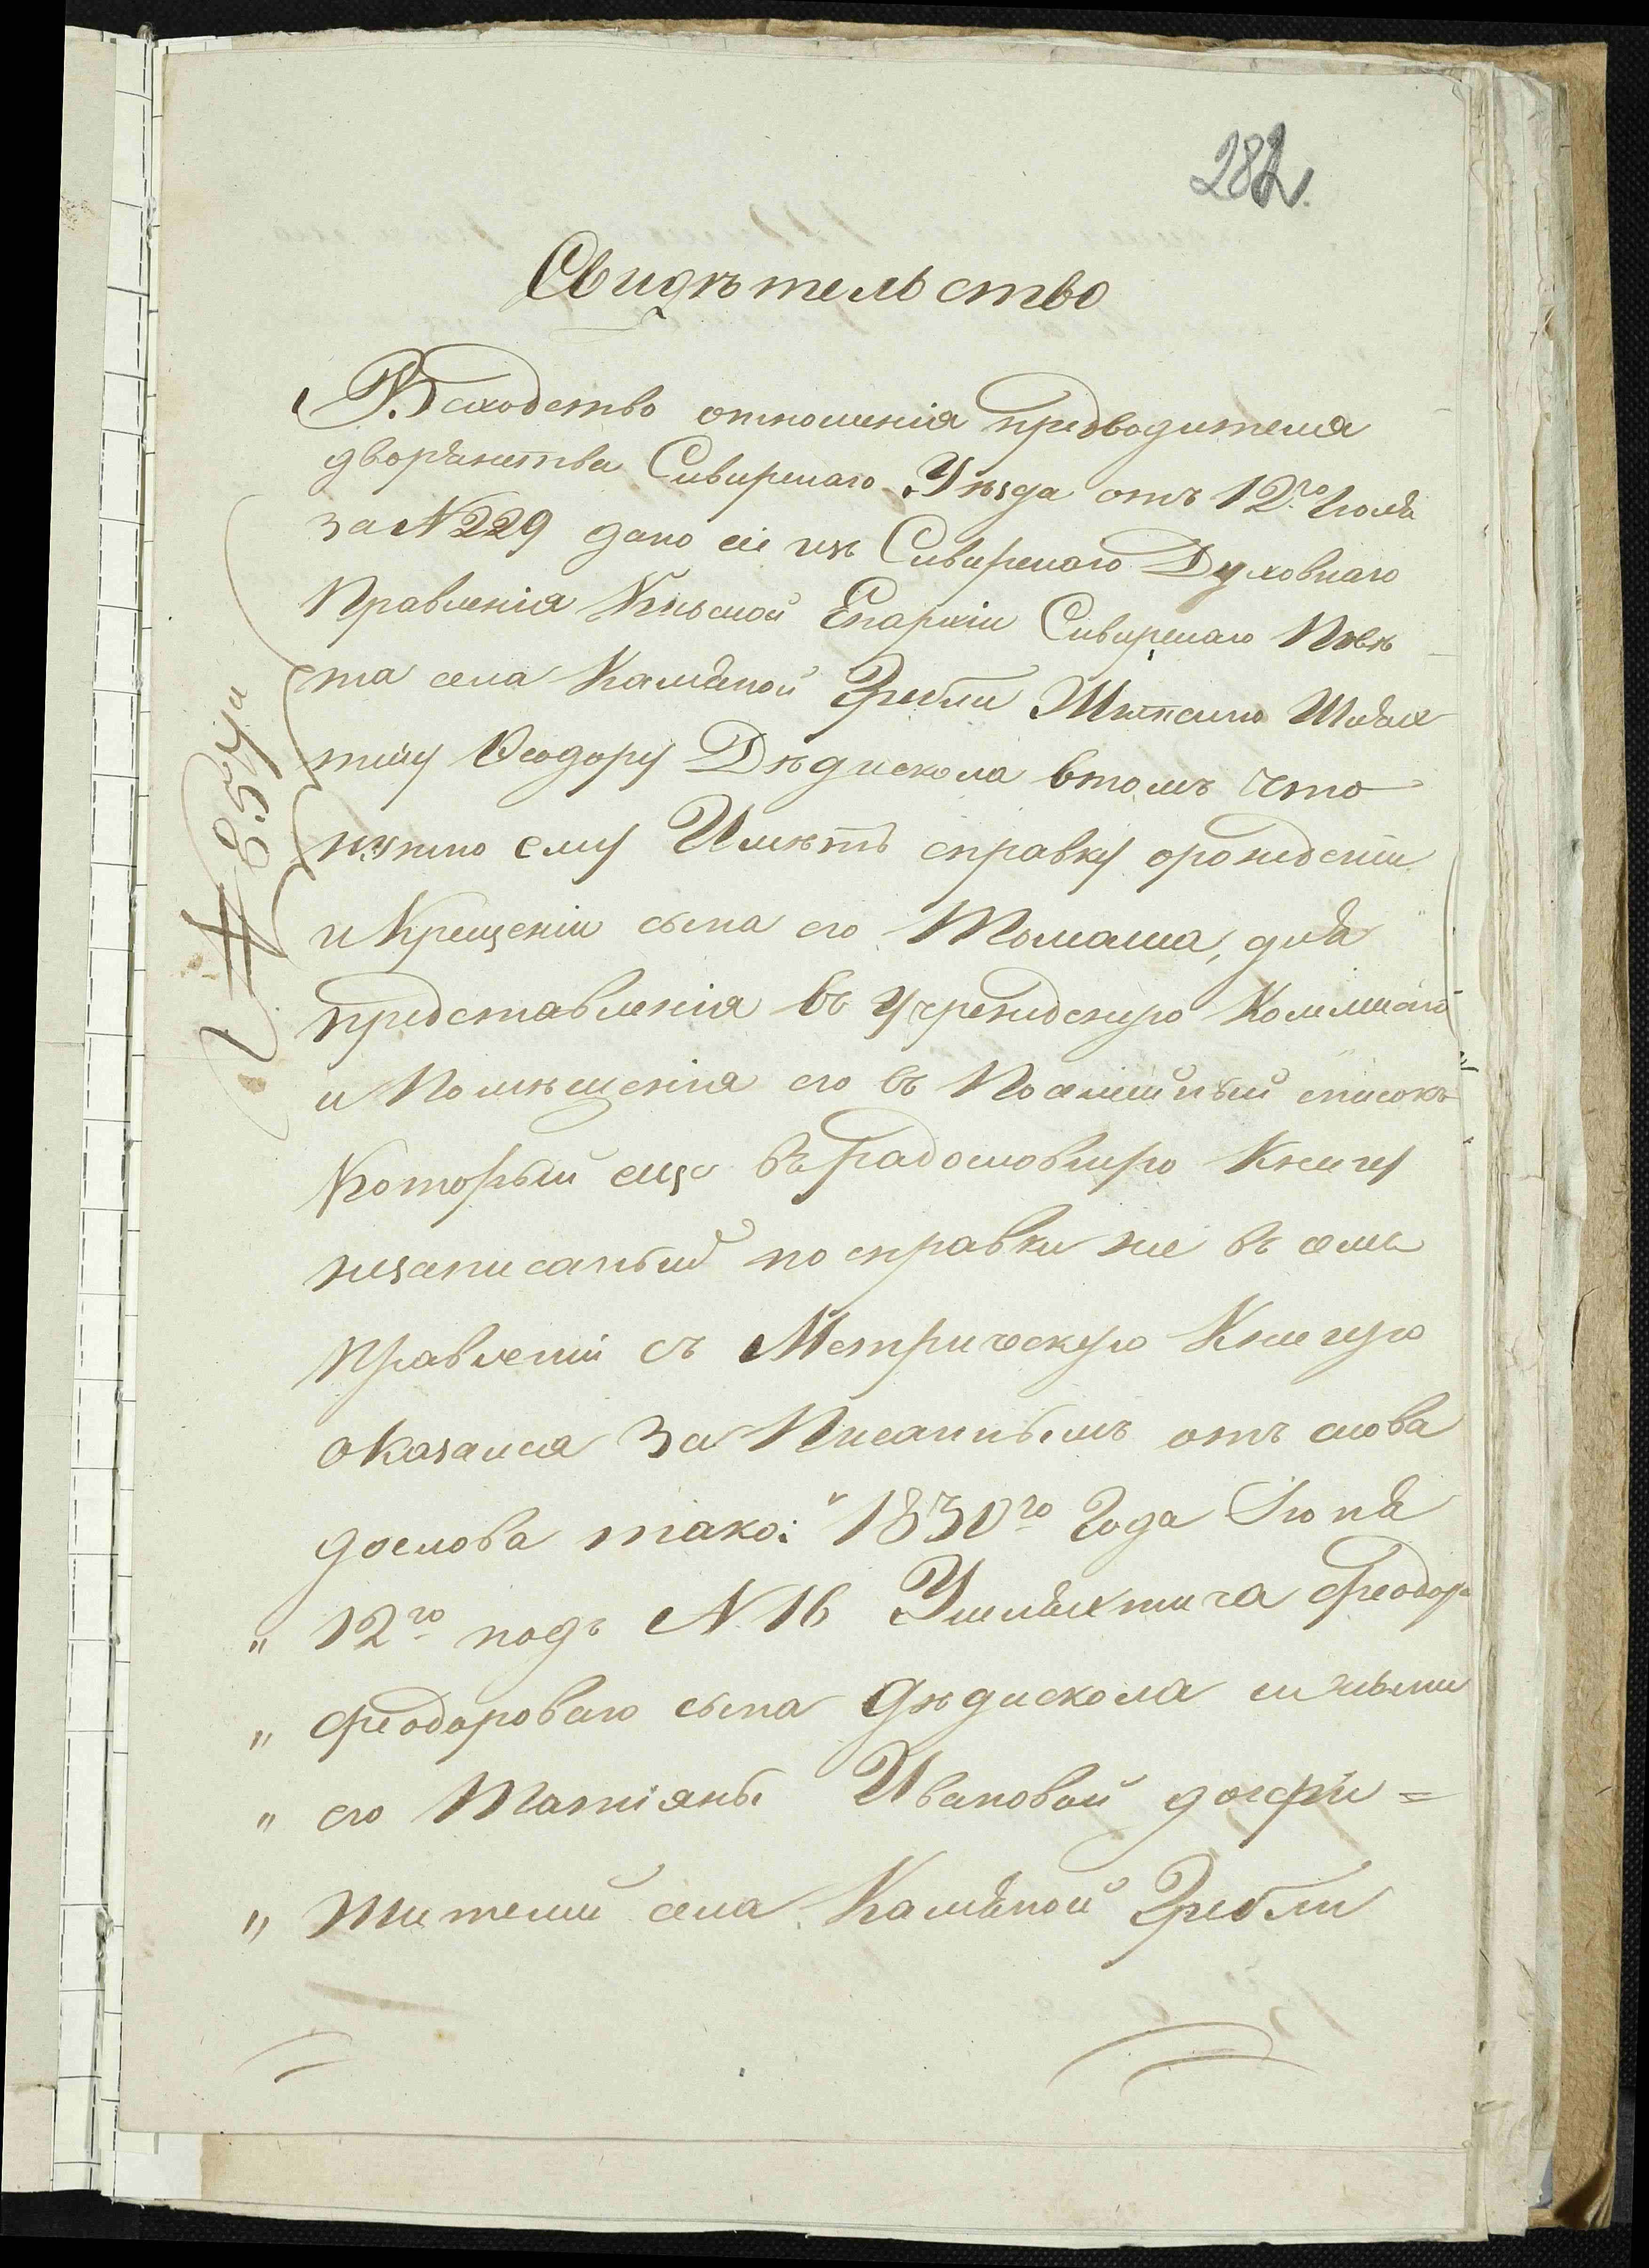 282.
Свидѣтельство
Всходство отношенія предводителя
дворянства Сквирскаго Уѣзда отъ 12го Іюля
за №229 дано сіе изъ Сквирскаго Духовнаго
Правленія Кіевской Епархіи Сквирскаго Повѣ
та села Каменной Гребли Жителю Шлях
тичу Ѳеодору Дѣдискола втомъ что
нужно ему Имѣть справку орождении
и Крещеніи сына его Томаша, для
представленія въ Учрежденую Коммисію
и Помѣщенія его въ Посемейный списокъ
Который еще въ радословную Книгу
незаписаный по справки же въ семъ
правлении съ Метрическую Книгую
оказался За Писаннымъ отъ слова
дослова тако: "1830го Года Іюня
" 12го подъ №16 Ушляхтича Феодора
" Феодороваго сына Дѣдискола и жены
" его Татіяны Ивановой дочери =
" Жителей села Каменной Гребли
№ 8.574